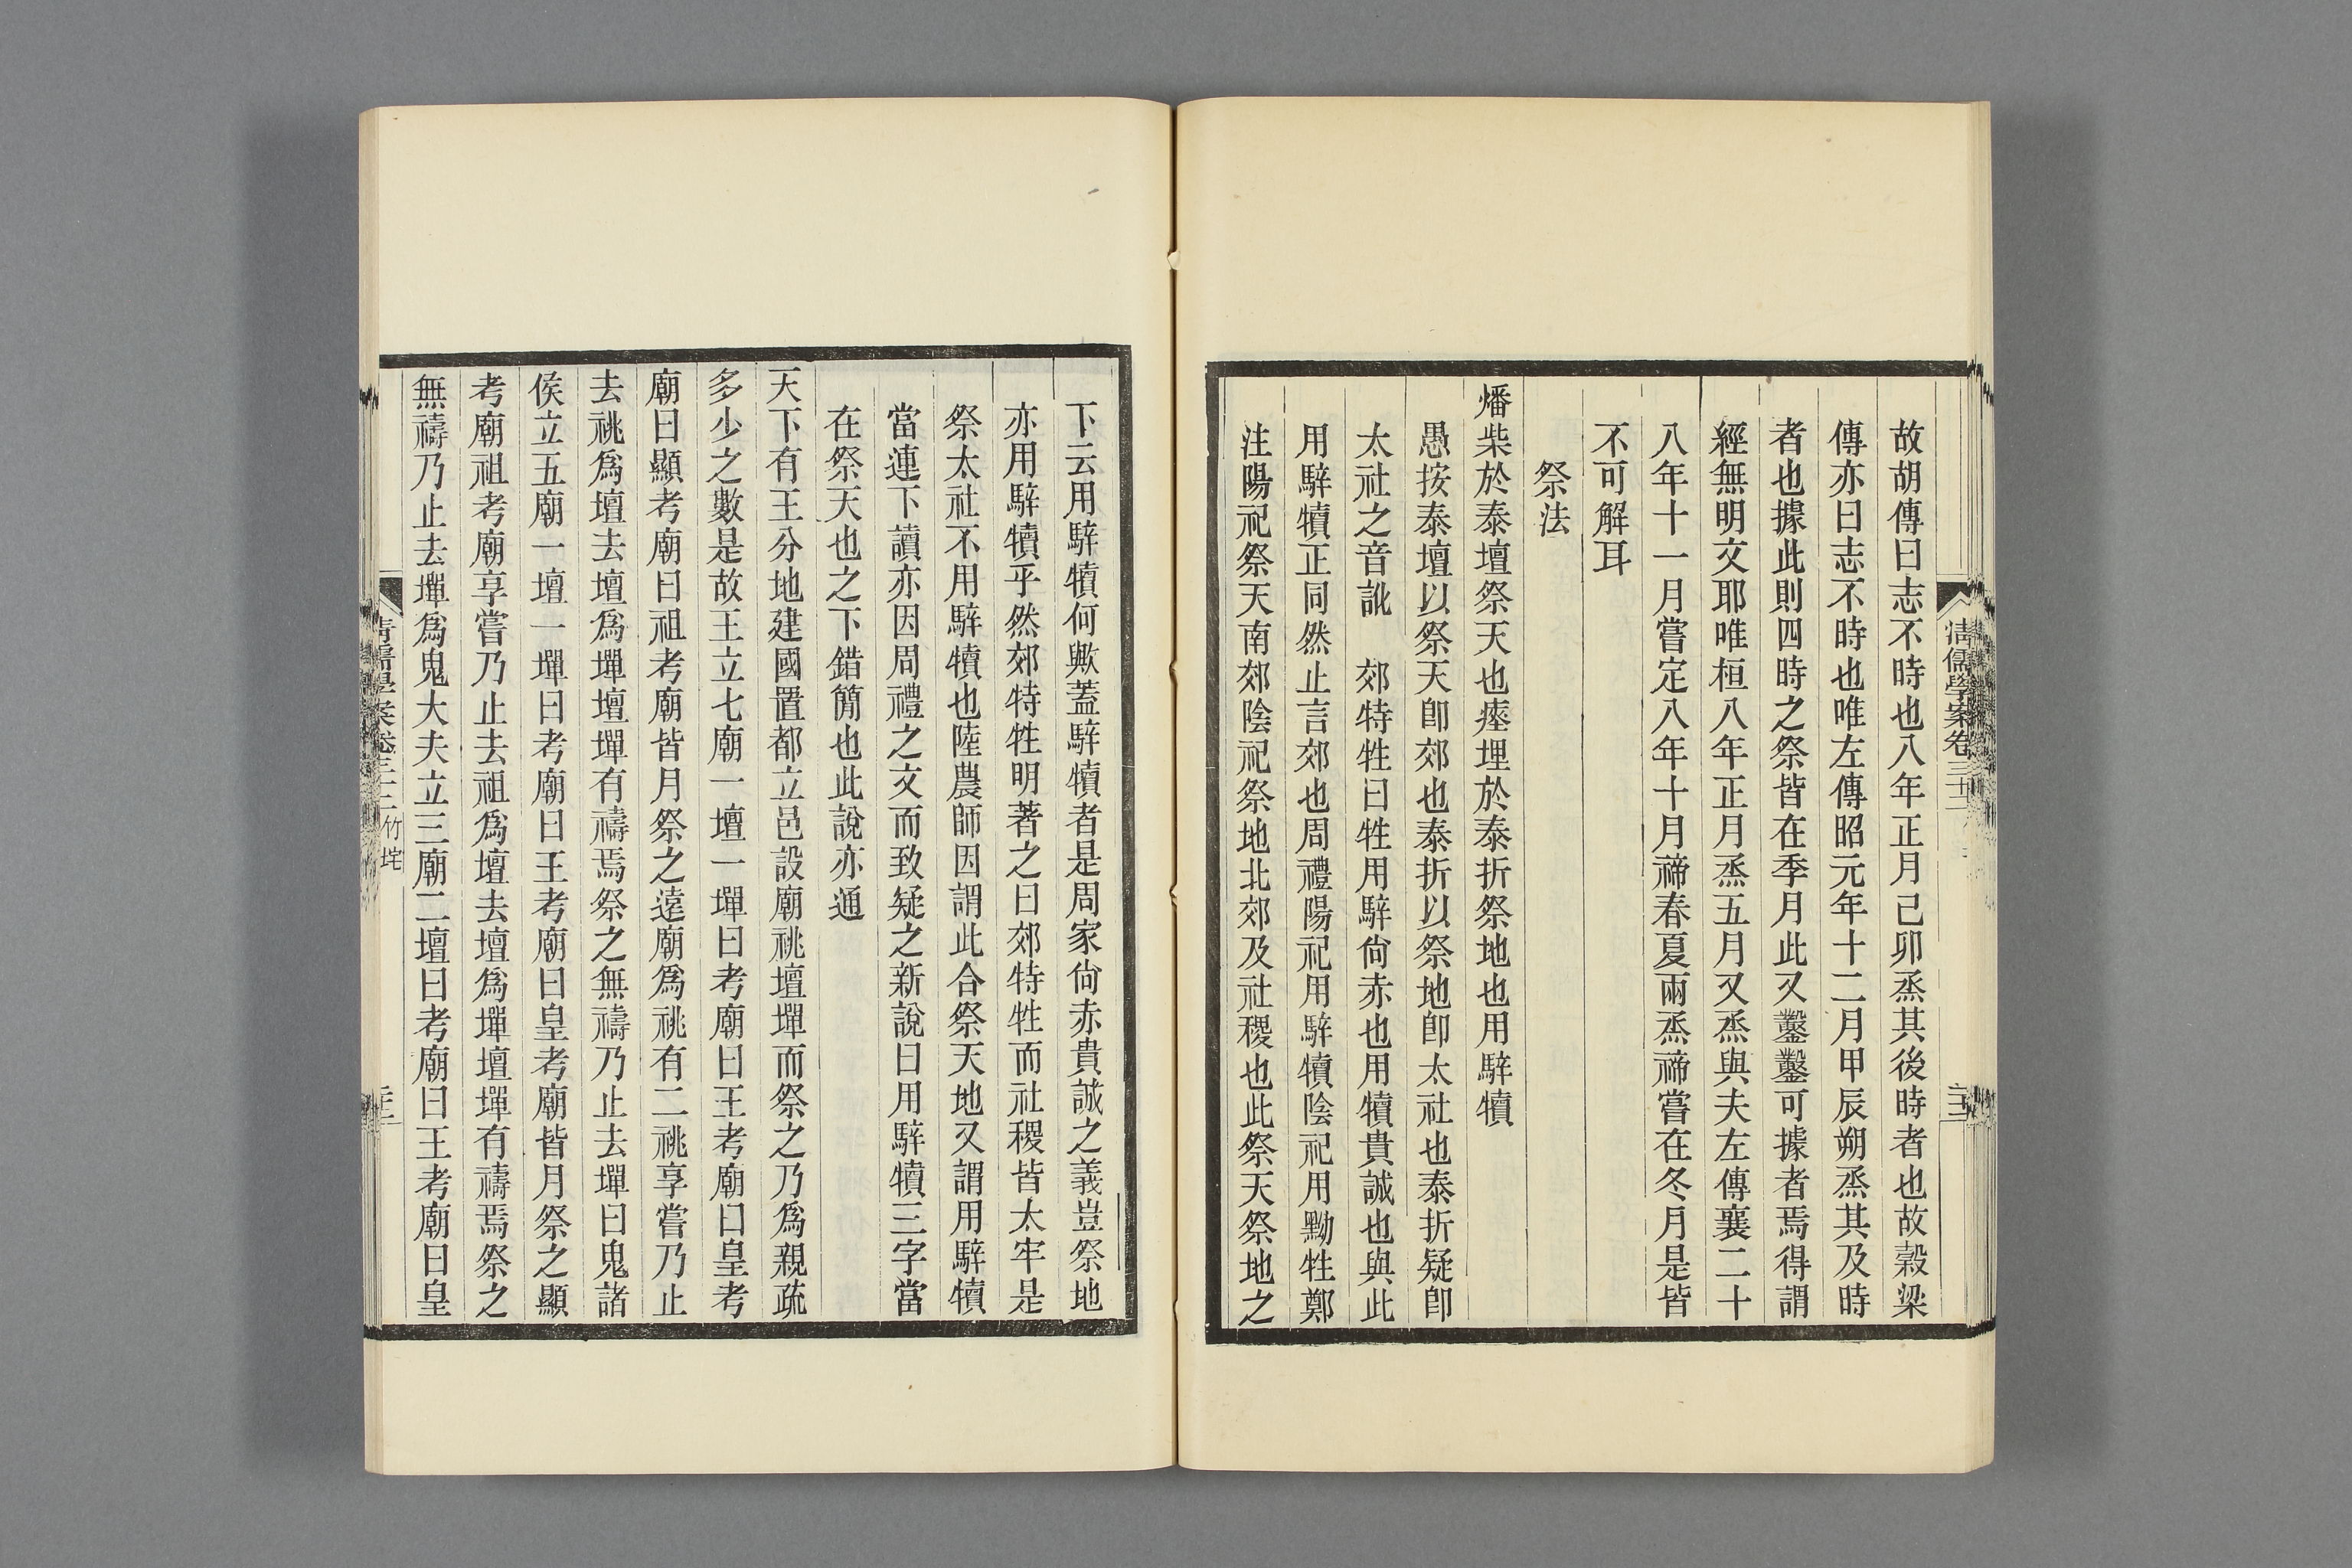 故胡傳曰志不時也八年正月己卯烝其後時者也故穀梁
傳亦曰志不時也唯左傳昭元年十二月甲辰朔烝其及時
者也據此則四時之祭皆在季月此又鑿鑿可據者焉得謂
經無明文耶唯桓八年正月烝五月又烝與夫左傳襄二十
八年十一月嘗定八年十月禘春夏兩烝禘嘗在冬月是皆
不可解耳
祭法
燔柴於泰壇祭天也瘞埋於泰折祭地也用騂犢
愚按泰壇以祭天卽郊也泰折以祭地卽太社也泰折疑卽
太社之音訛　郊特牲曰牲用騂尙赤也用犢貴誠也與此
用騂犢正同然止言郊也周禮陽祀用騂犢陰祀用黝牲鄭
注陽祀祭天南郊陰祀祭地北郊及社稷也此祭天祭地之
清儒學案卷三十二
下云用騂犢何歟蓋騂犢者是周家尙赤貴誠之義豈祭地
亦用騂犢乎然郊特牲明著之曰郊特牲而社稷皆太牢是
祭太社不用騂犢也陸農師因謂此合祭天地又謂用騂犢
當連下讀亦因周禮之文而致疑之新說曰用騂犢三字當
在祭天也之下錯簡也此說亦通
天下有王分地建國置都立邑設廟祧壇墠而祭之乃爲親疏
多少之數是故王立七廟一壇一墠曰考廟曰王考廟曰皇考
廟曰顯考廟曰祖考廟皆月祭之遠廟爲祧有二祧享嘗乃止
去祧爲壇去壇爲墠壇墠有禱焉祭之無禱乃止去墠曰鬼諸
侯立五廟一壇一墠曰考廟曰王考廟曰皇考廟皆月祭之顯
考廟祖考廟享嘗乃止去祖爲壇去壇爲墠壇墠有禱焉祭之
無禱乃止去墠爲鬼大夫立三廟二壇曰考廟曰王考廟曰皇
竹垞